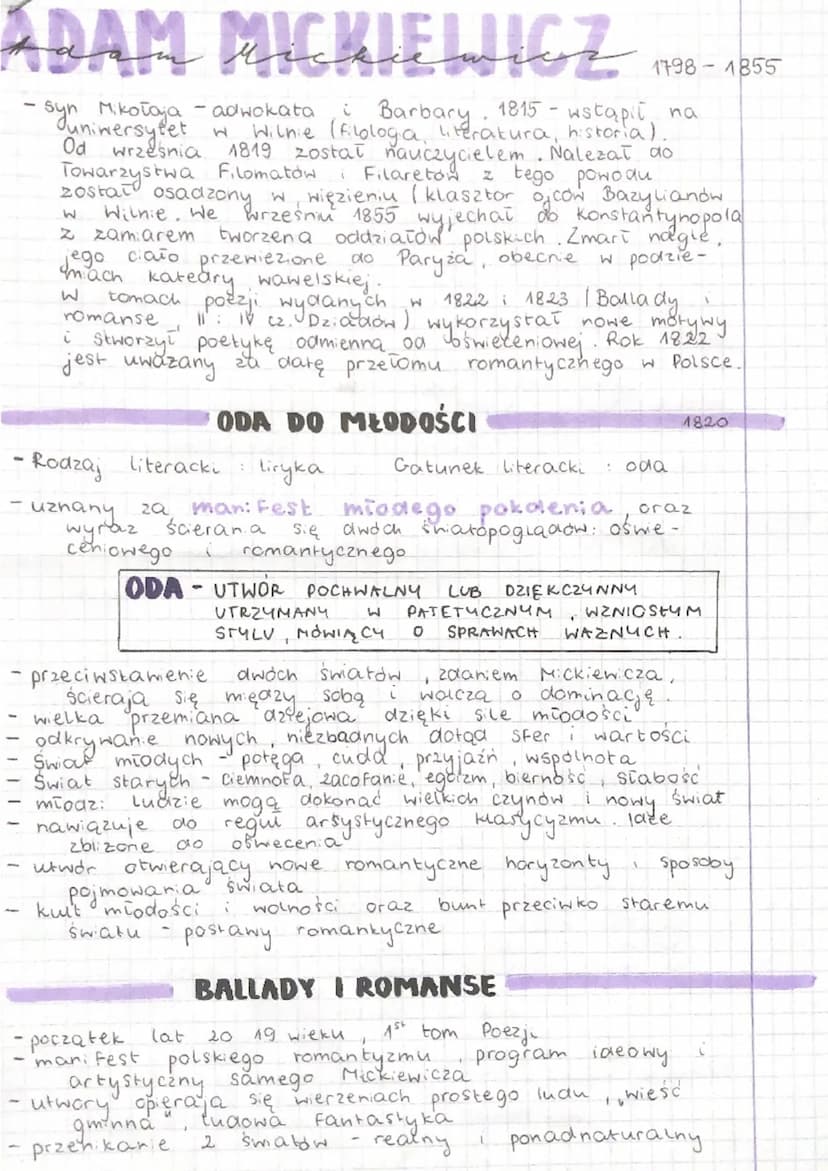 ADAM MICKIEWICZ
Adam Mickiewicz
1798 - 1855
- syn Mikołaja - adwokata i Barbary. 1815 - wstąpił na
uniwersytet w Wilnie (filologa, literatura, historia).
Od września 1819 został nauczycielem. Należał do
Towarzystwa Filomatów i Filaretów z tego powodu
został osadzony w więzieniu (klasztor ojców Bazylianów
w Wilnie. We wrześniu 1855 wyjechał do Konstantynopola
z zamiarem tworzena oddziałów polskich. Zmarł nagle,
jego ciało przewiezione do Paryża, obecnie w podzie-
miach katedry wawelskiej.
W tomach poezji wydanych w 1822 i 1823 (Ballady i
romanse, II i IV cz. Dziadów) wykorzystał nowe motywy
i stworzył poetykę odmienną od oświeceniowej. Rok 1822
jest uważany za datę przełomu romantycznego w Polsce.
ODA DO MŁODOŚCI 1820
- Rodzaj literacki : liryka Gatunek literacki : oda
- uznany za manifest młodego pokolenia, oraz
wyraz ścierania się dwóch światopoglądów: oświe-
ceniowego i romantycznego
ODA - UTWÓR POCHWALNY LUB DZIĘKCZYNNY
UTRZYMANY W PATETYCZNYM, WZNIOSŁYM
STYLU, MÓWIĄCY O SPRAWACH WAŻNYCH.
- przeciwstawienie dwóch światów, zdaniem Mickiewicza,
ścierają się między sobą i walczą o dominację.
- wielka przemiana dziejowa dzięki sile młodości
- odkrywanie nowych, niezbadnych dotąd sfer i wartości
- Świat młodych - potęga, cuda, przyjaźń, wspólnota
- Świat starych - ciemnota, zacofanie, egoizm, bierność, słabość
- młodzi ludzie mogą dokonać wielkich czynów i nowy świat
- nawiązuje do reguł artystycznego klasycyzmu. Idee
zbliżone do oświecenia
- utwór otwierający nowe romantyczne horyzonty i sposoby
pojmowania świata
- kult młodości i wolności oraz bunt przeciwko staremu
światu - postawy romantyczne
BALLADY I ROMANSE
- początek lat 20 19 wieku, 1st tom Poezji
- manifest polskiego romantyzmu, program ideowy i
artystyczny samego Mickiewicza
- utwory opierają się wierzeniach prostego ludu, „wieść
gminna", ludowa fantastyka
- przenikanie 2 światów - realny i ponadnaturalny